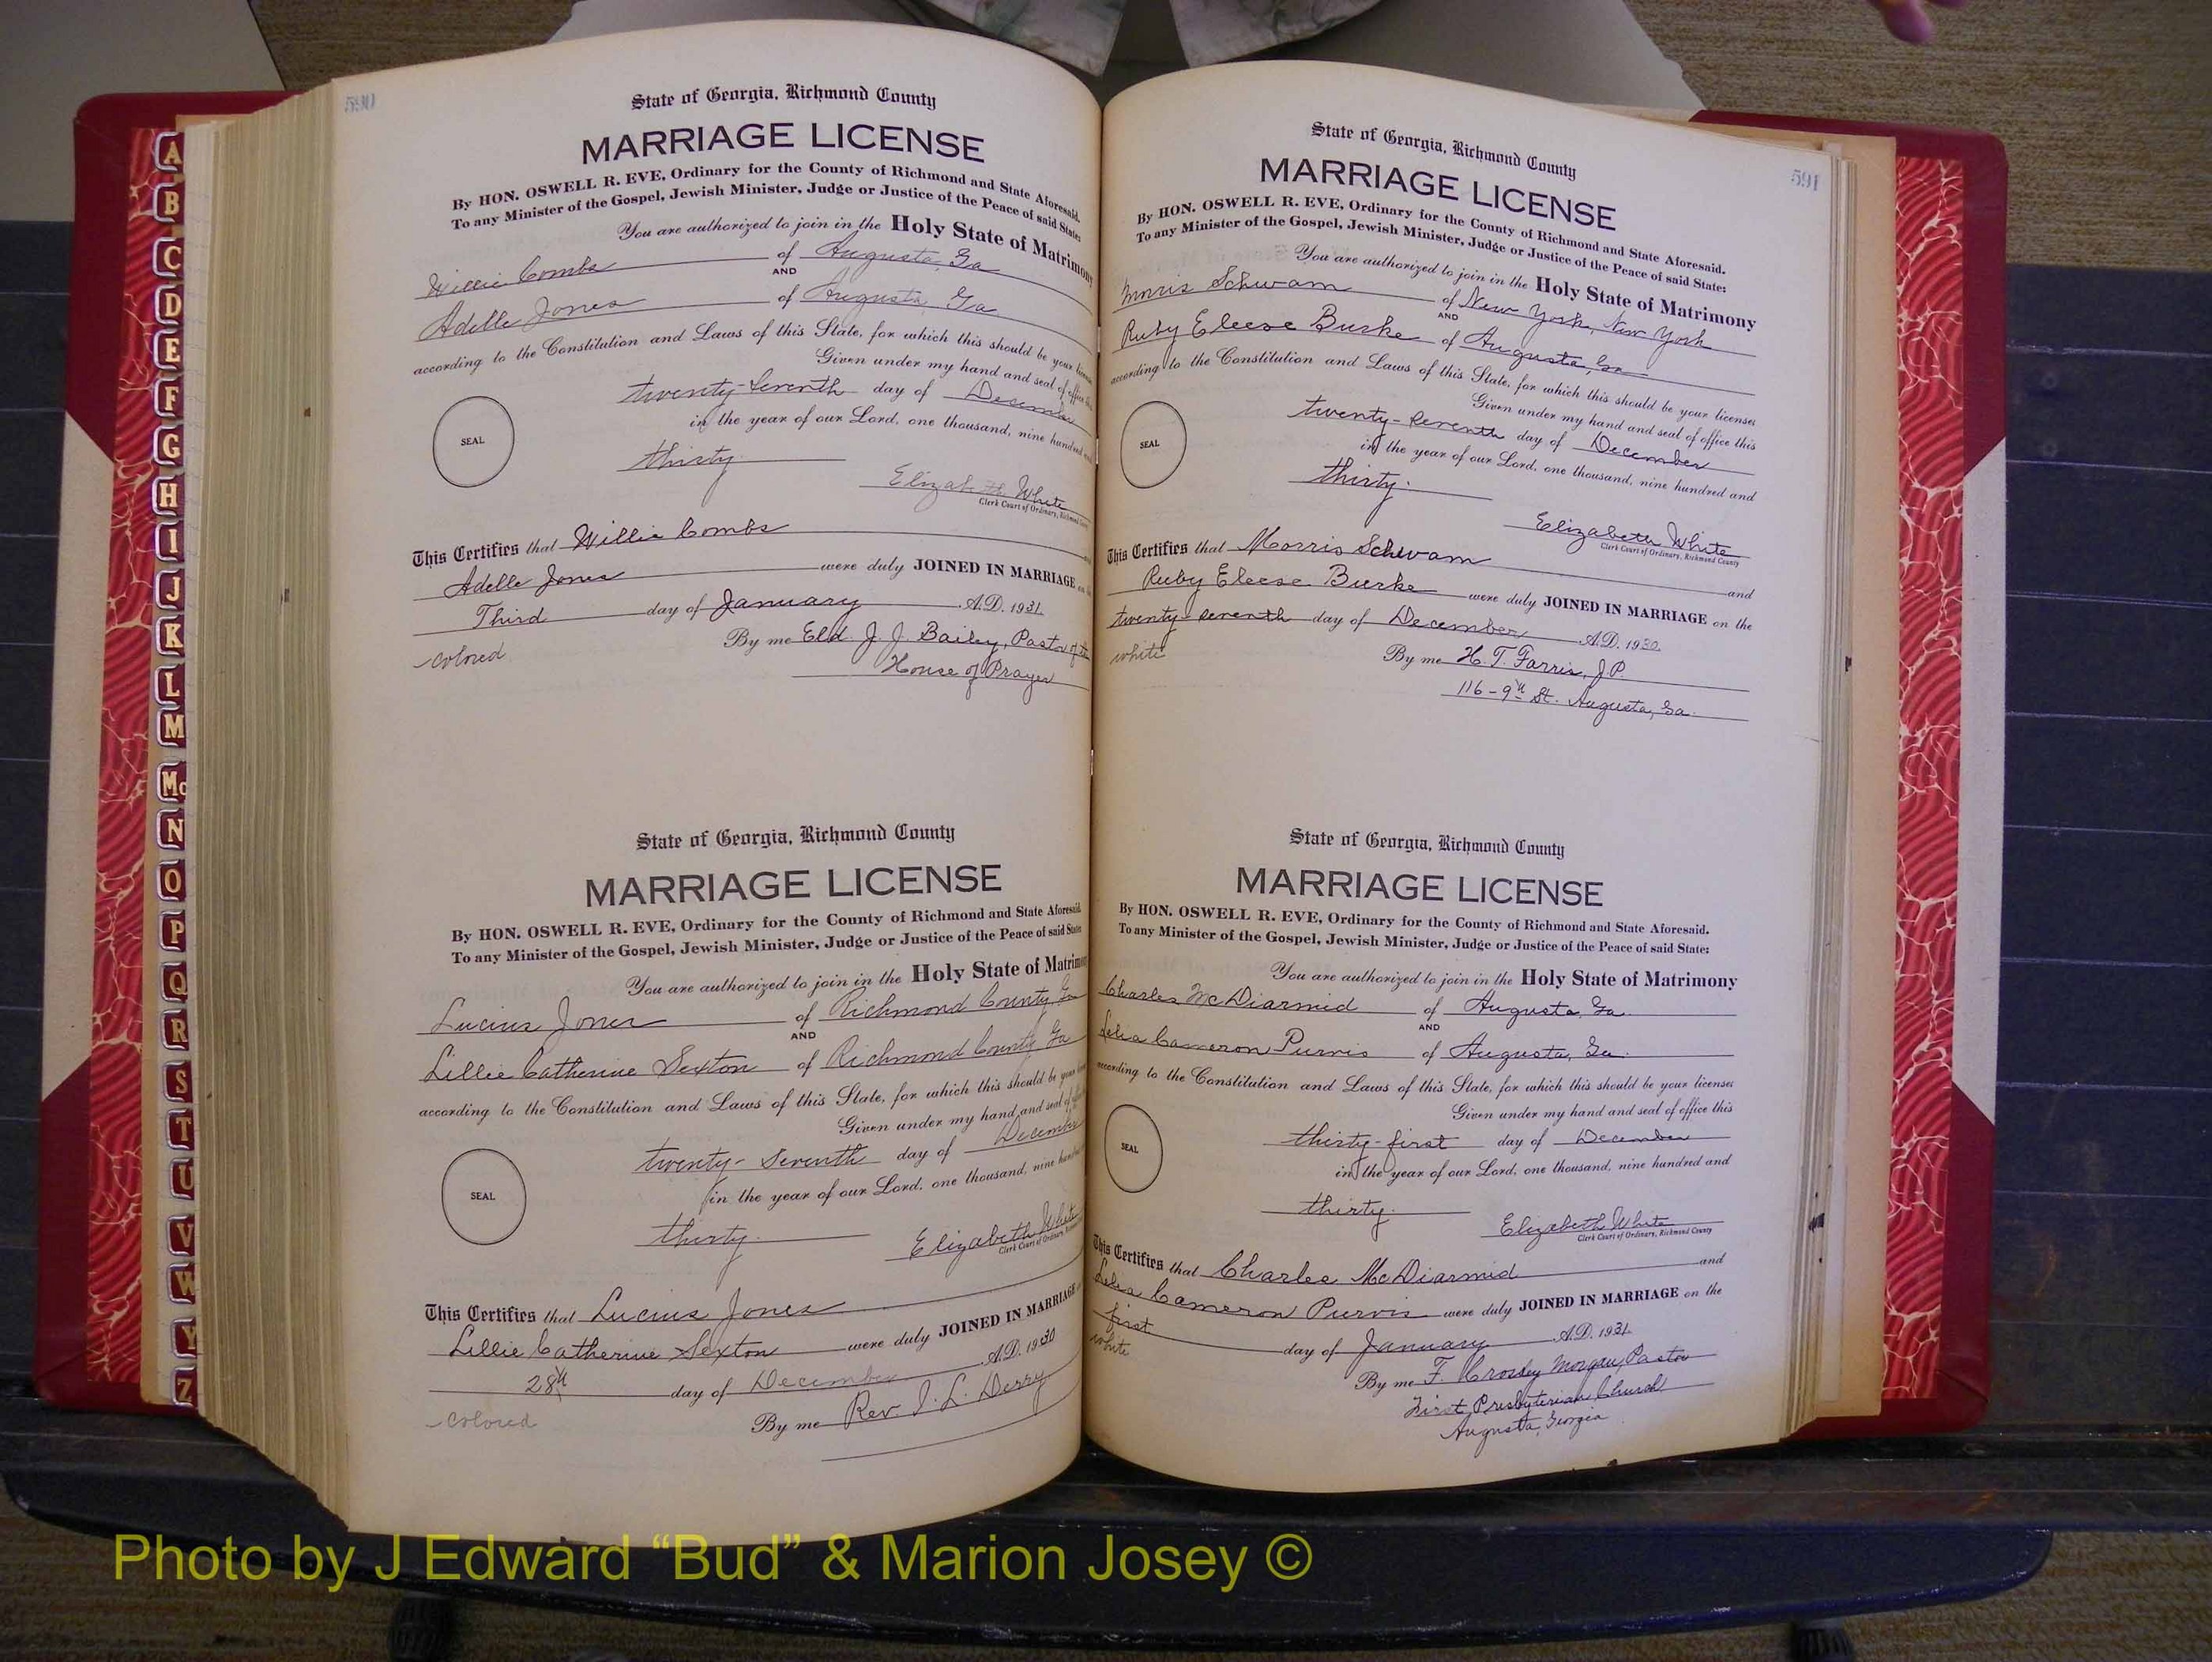 A
B
C
D
E
F
G
H
I
J
K
L
M
Mc
N
O
P
Q
R
S
T
U
V
W
Y
Z
590
State of Georgia, Richmond County
MARRIAGE LICENSE
By HON. OSWELL R. EVE, Ordinary for the County of Richmond and State Aforesaid.
To any Minister of the Gospel, Jewish Minister, Judge or Justice of the Peace of said State:
You are authorized to join in the Holy State of Matrimony
Willie Combs of Augusta, Ga
AND
Adelle Jones of Augusta, Ga
according to the Constitution and Laws of this State, for which this should be your
Given under my hand and seal of office
twenty-seventh day of December
in the year of our Lord, one thousand, nine hundred
SEAL
thirty.
Elizabeth White
Clerk Court of Ordinary, Richmond
This Certifies that Willie Combs
Adelle Jones were duly JOINED IN MARRIAGE on
Third day of January A.D. 1931.
colored By me Eld. J. J. Bailey, Pastor of the
House of Prayer
State of Georgia, Richmond County
MARRIAGE LICENSE
By HON. OSWELL R. EVE, Ordinary for the County of Richmond and State Aforesaid.
To any Minister of the Gospel, Jewish Minister, Judge or Justice of the Peace of said State:
You are authorized to join in the Holy State of Matrimony
Lucius Jones of Richmond County, Ga
AND
Lillie Catherine Sexton of Richmond County, Ga
according to the Constitution and Laws of this State, for which this should be your
Given under my hand and seal of
twenty-seventh day of December
in the year of our Lord, one thousand, nine
SEAL
thirty.
Elizabeth White
Clerk Court of Ordinary,
This Certifies that Lucius Jones
Lillie Catherine Sexton were duly JOINED IN MARRIAGE
28th day of December A.D. 1930
colored By me Rev. I. L. Derry
591
State of Georgia, Richmond County
MARRIAGE LICENSE
By HON. OSWELL R. EVE, Ordinary for the County of Richmond and State Aforesaid.
To any Minister of the Gospel, Jewish Minister, Judge or Justice of the Peace of said State:
You are authorized to join in the Holy State of Matrimony
Morris Schwam of New York, New York
AND
Ruby Eleese Burke of Augusta, Ga
according to the Constitution and Laws of this State, for which this should be your licenses
Given under my hand and seal of office this
twenty-seventh day of December
in the year of our Lord, one thousand, nine hundred and
SEAL
thirty.
Elizabeth White
Clerk Court of Ordinary, Richmond County
This Certifies that Morris Schwam and
Ruby Eleese Burke were duly JOINED IN MARRIAGE on the
twenty-seventh day of December A.D. 1930.
white By me H. T. Farris, J.P.
116-9th St. Augusta, Ga.
State of Georgia, Richmond County
MARRIAGE LICENSE
By HON. OSWELL R. EVE, Ordinary for the County of Richmond and State Aforesaid.
To any Minister of the Gospel, Jewish Minister, Judge or Justice of the Peace of said State:
You are authorized to join in the Holy State of Matrimony
Charles McDiarmid of Augusta, Ga.
AND
Lelia Cameron Purvis of Augusta, Ga.
according to the Constitution and Laws of this State, for which this should be your licenses
Given under my hand and seal of office this
thirty-first day of December
in the year of our Lord, one thousand, nine hundred and
SEAL
thirty.
Elizabeth White
Clerk Court of Ordinary, Richmond County
This Certifies that Charles McDiarmid and
Lelia Cameron Purvis were duly JOINED IN MARRIAGE on the
first day of January A.D. 1931.
white By me F. Crossley Morgan, Pastor
First Presbyterian Church
Augusta, Georgia
Photo by J Edward “Bud” & Marion Josey ©